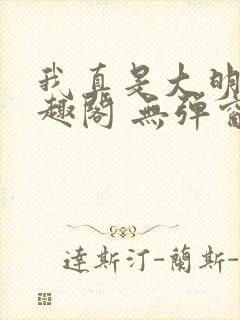 我真是大明
趣閣 無彈窗
達斯汀-蘭斯-